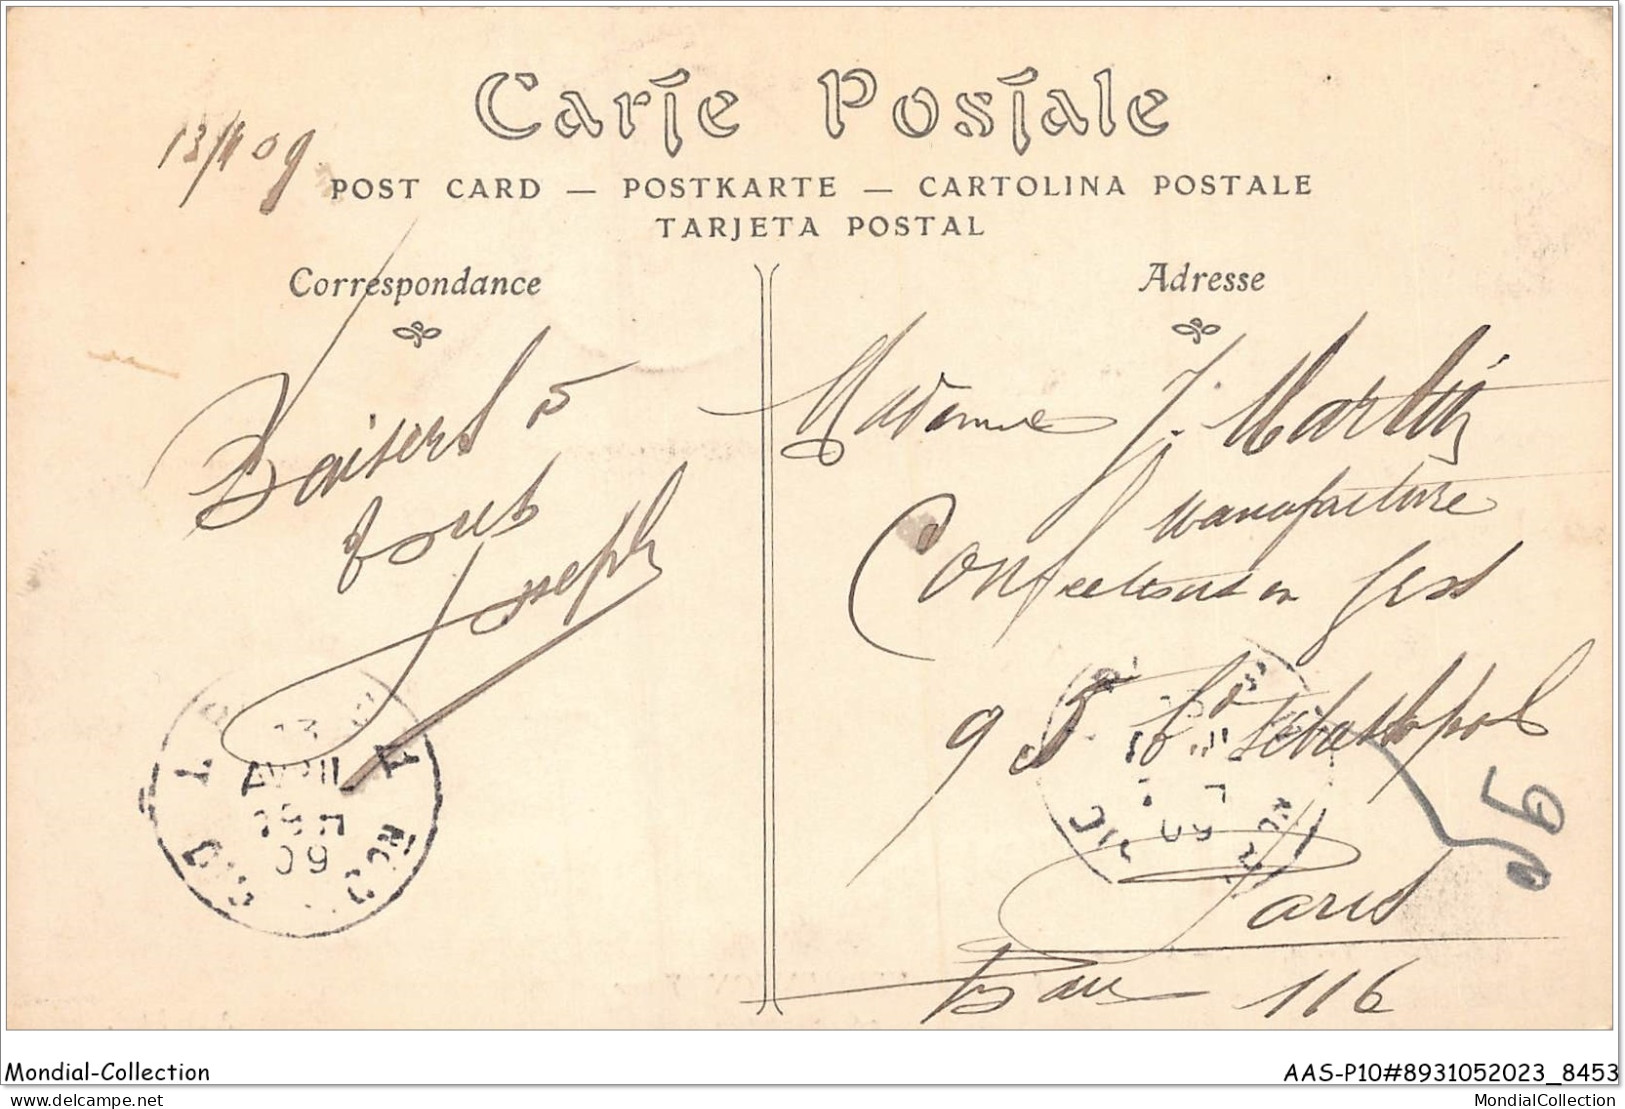 Carte Postale
13/4 09
POST CARD — POSTKARTE — CARTOLINA POSTALE
TARJETA POSTAL
Correspondance
Baisers à
tous
Joseph
AVRIL
09
Adresse
Madame J. Martin
Manufacture
Confections en
95 Bd Sébastopol
09
Paris
Bau 116
95
Mondial-Collection
AAS-P10#8931052023_8453
www.delcampe.net
MondialCollection